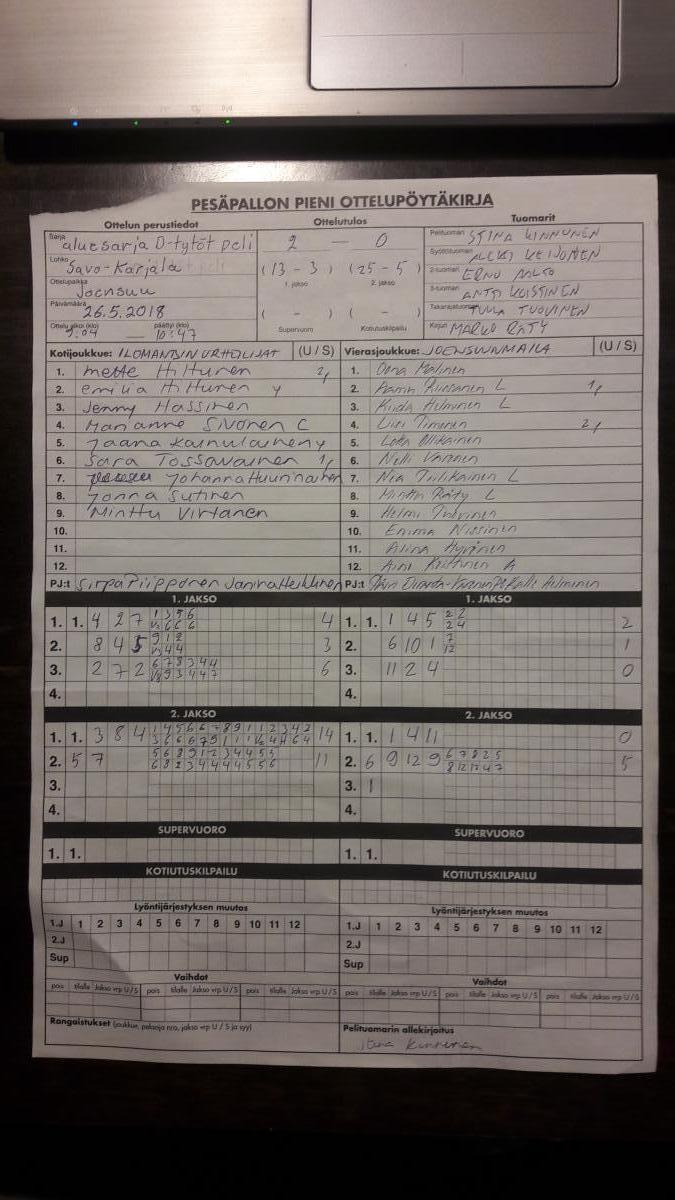 PESÄPALLON PIENI OTTELUPÖYTÄKIRJA
Ottelun perustiedot
Sarja
aluesarja D-tytöt peli
Lohko
Savo-Karjala
Ottelupaikka
Joensuu
Päivämäärä
26.5.2018
Ottelu alkoi (klo) päättyi (klo)
9.04 — 10:47
Ottelutulos
2 — 0
(13 - 3) (25 - 5)
1. jakso 2. jakso
( - ) ( - )
Supervuoro Kotiutuskilpailu
Tuomarit
Pelituomari STINA KINNUNEN
Syöttötuomari ALEKSI KEIJONEN
2-tuomari ERNO AALTO
3-tuomari ANTTI KEISTINEN
Takarajatuomari TUULA TUOVINEN
Kirjuri MARKO RÄTY
Kotijoukkue: ILOMANTSIN URHEILIJAT (U / S)
1. Mette Hiltunen 2,
2. emilia Hiltunen y
3. Jenny Hassinen
4. Marianne Sivonen C
5. Jaana Kainulainen y
6. Sara Tossavainen 1,
7. Johanna Huurinainen
8. Jonna Sutinen
9. Minttu Virtanen
10.
11.
12.
PJ:t Sirpa Piipponen Janina Heikkinen
Vierasjoukkue: JOENSUUN MAILA (U / S)
1. Oona Malinen
2. L 1,
3. Helminen L
4. Timonen 2,
5. Ollikainen
6. Nelli Varonen
7. Nia Tulikainen L
8. Minttu Räty L
9. Helmi
10. Emma Nissinen
11. Alina Hyvönen
12. Aini Kettinen A
PJ:t Kalle Helminen
1. JAKSO
1. 1. 4 2 7 1 3 5 6 4
6 6 6
2. 8 4 5 9 1 2 3
4 4
3. 2 7 2 6 7 8 3 4 4 6
9 3 4 4 7
4.
1. JAKSO
1. 1. 1 4 5 2 2 2
2 4
2. 6 10 1 7 1
12
3. 11 2 4 0
4.
2. JAKSO
1. 1. 3 8 4 1 4 5 6 6 7 8 9 1 1 2 3 4 2 14
2. 5 7 5 6 8 9 1 2 3 4 4 5 5 11
6 8 2 3 4 4 4 4 5 5 6
3.
4.
2. JAKSO
1. 1. 1 4 11 0
2. 6 9 12 9 6 7 8 2 5 5
8 12 12 4 7
3. 1
4.
SUPERVUORO
1. 1.
SUPERVUORO
1. 1.
KOTIUTUSKILPAILU
KOTIUTUSKILPAILU
Lyöntijärjestyksen muutos
1.J 1 2 3 4 5 6 7 8 9 10 11 12
2.J
Sup
Lyöntijärjestyksen muutos
1.J 1 2 3 4 5 6 7 8 9 10 11 12
2.J
Sup
Vaihdot
pois tilalle Jakso vrp U / S pois tilalle Jakso vrp U / S pois tilalle Jakso vrp U / S
Vaihdot
pois tilalle Jakso vrp U / S pois tilalle Jakso vrp U / S pois tilalle Jakso vrp U / S
Rangaistukset (joukkue, pelaaja nro, jakso vrp U / S ja syy)
Pelituomarin allekirjoitus
Stina Kinnunen